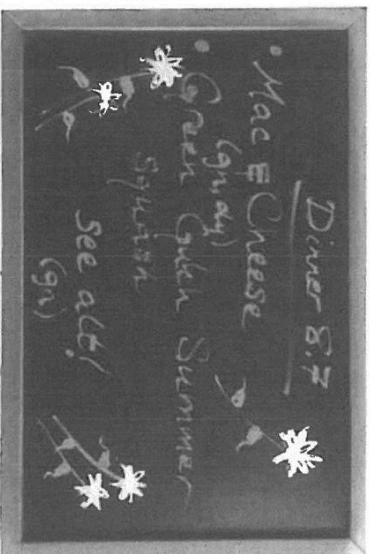 Dinner 8.7
• Mac & Cheese
(gn dy)
• Green Gulch Summer
Squash
See alt!
(gn)